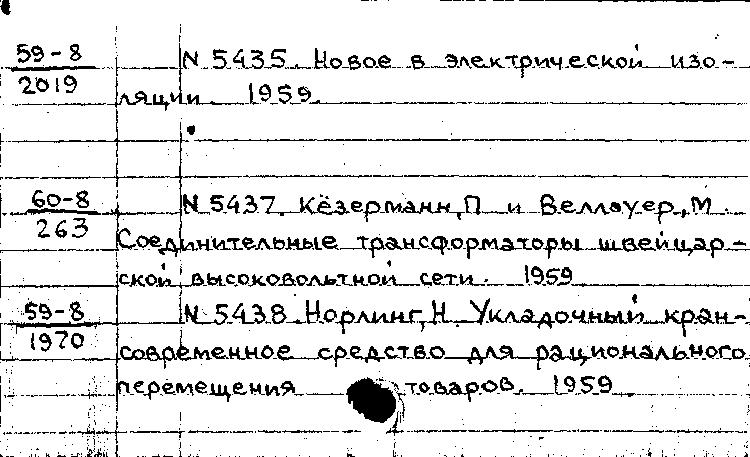 59-8 N 5435. Новое в электрической изо-
2019 ляции. 1959.
60-8 N 5437. Кёзерманн, П и Веллауер, М.
263 Соединительные трансформаторы швейцар-
ской высоковольтной сети. 1959
59-8 N 5438. Норлинг, Н. Укладочный кран-
1970 современное средство для рационального
перемещения товаров. 1959.